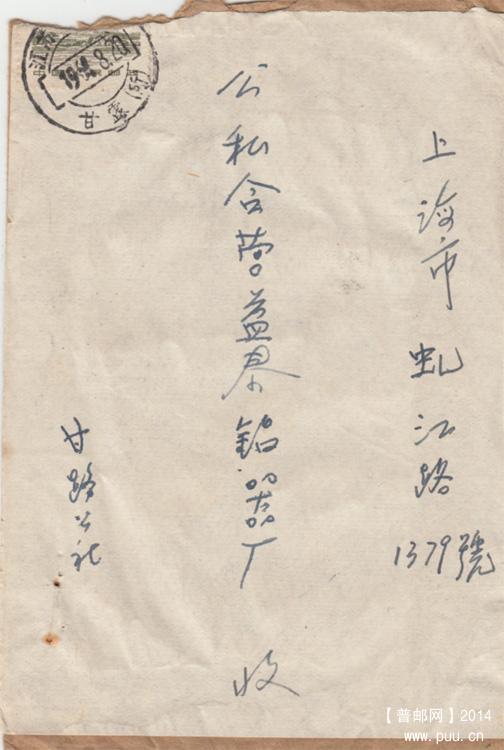 上海市虬江路1379號
公私合营益泰铝器厂 收
甘路公社
江苏
甘露
【普邮网】2014
www.puu.cn